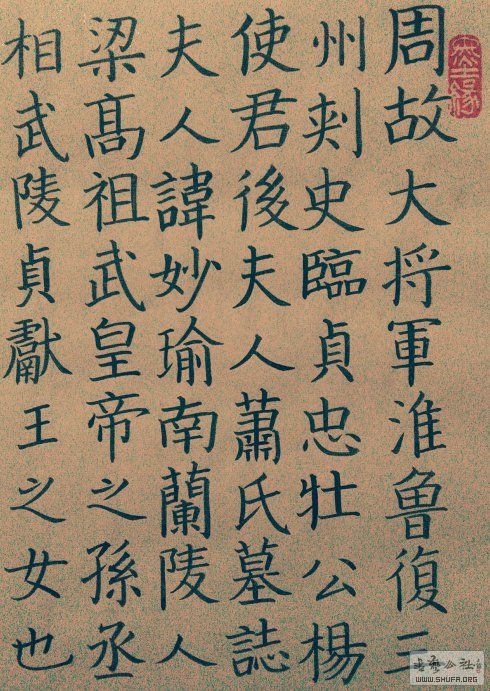 周故大将軍淮魯復三
州刾史臨貞忠壮公楊
使君後夫人蕭氏墓誌
夫人諱妙瑜南蘭陵人
梁髙祖武皇帝之孫丞
相武陵貞獻王之女也
書藝公社
WWW.SHUFA.ORG